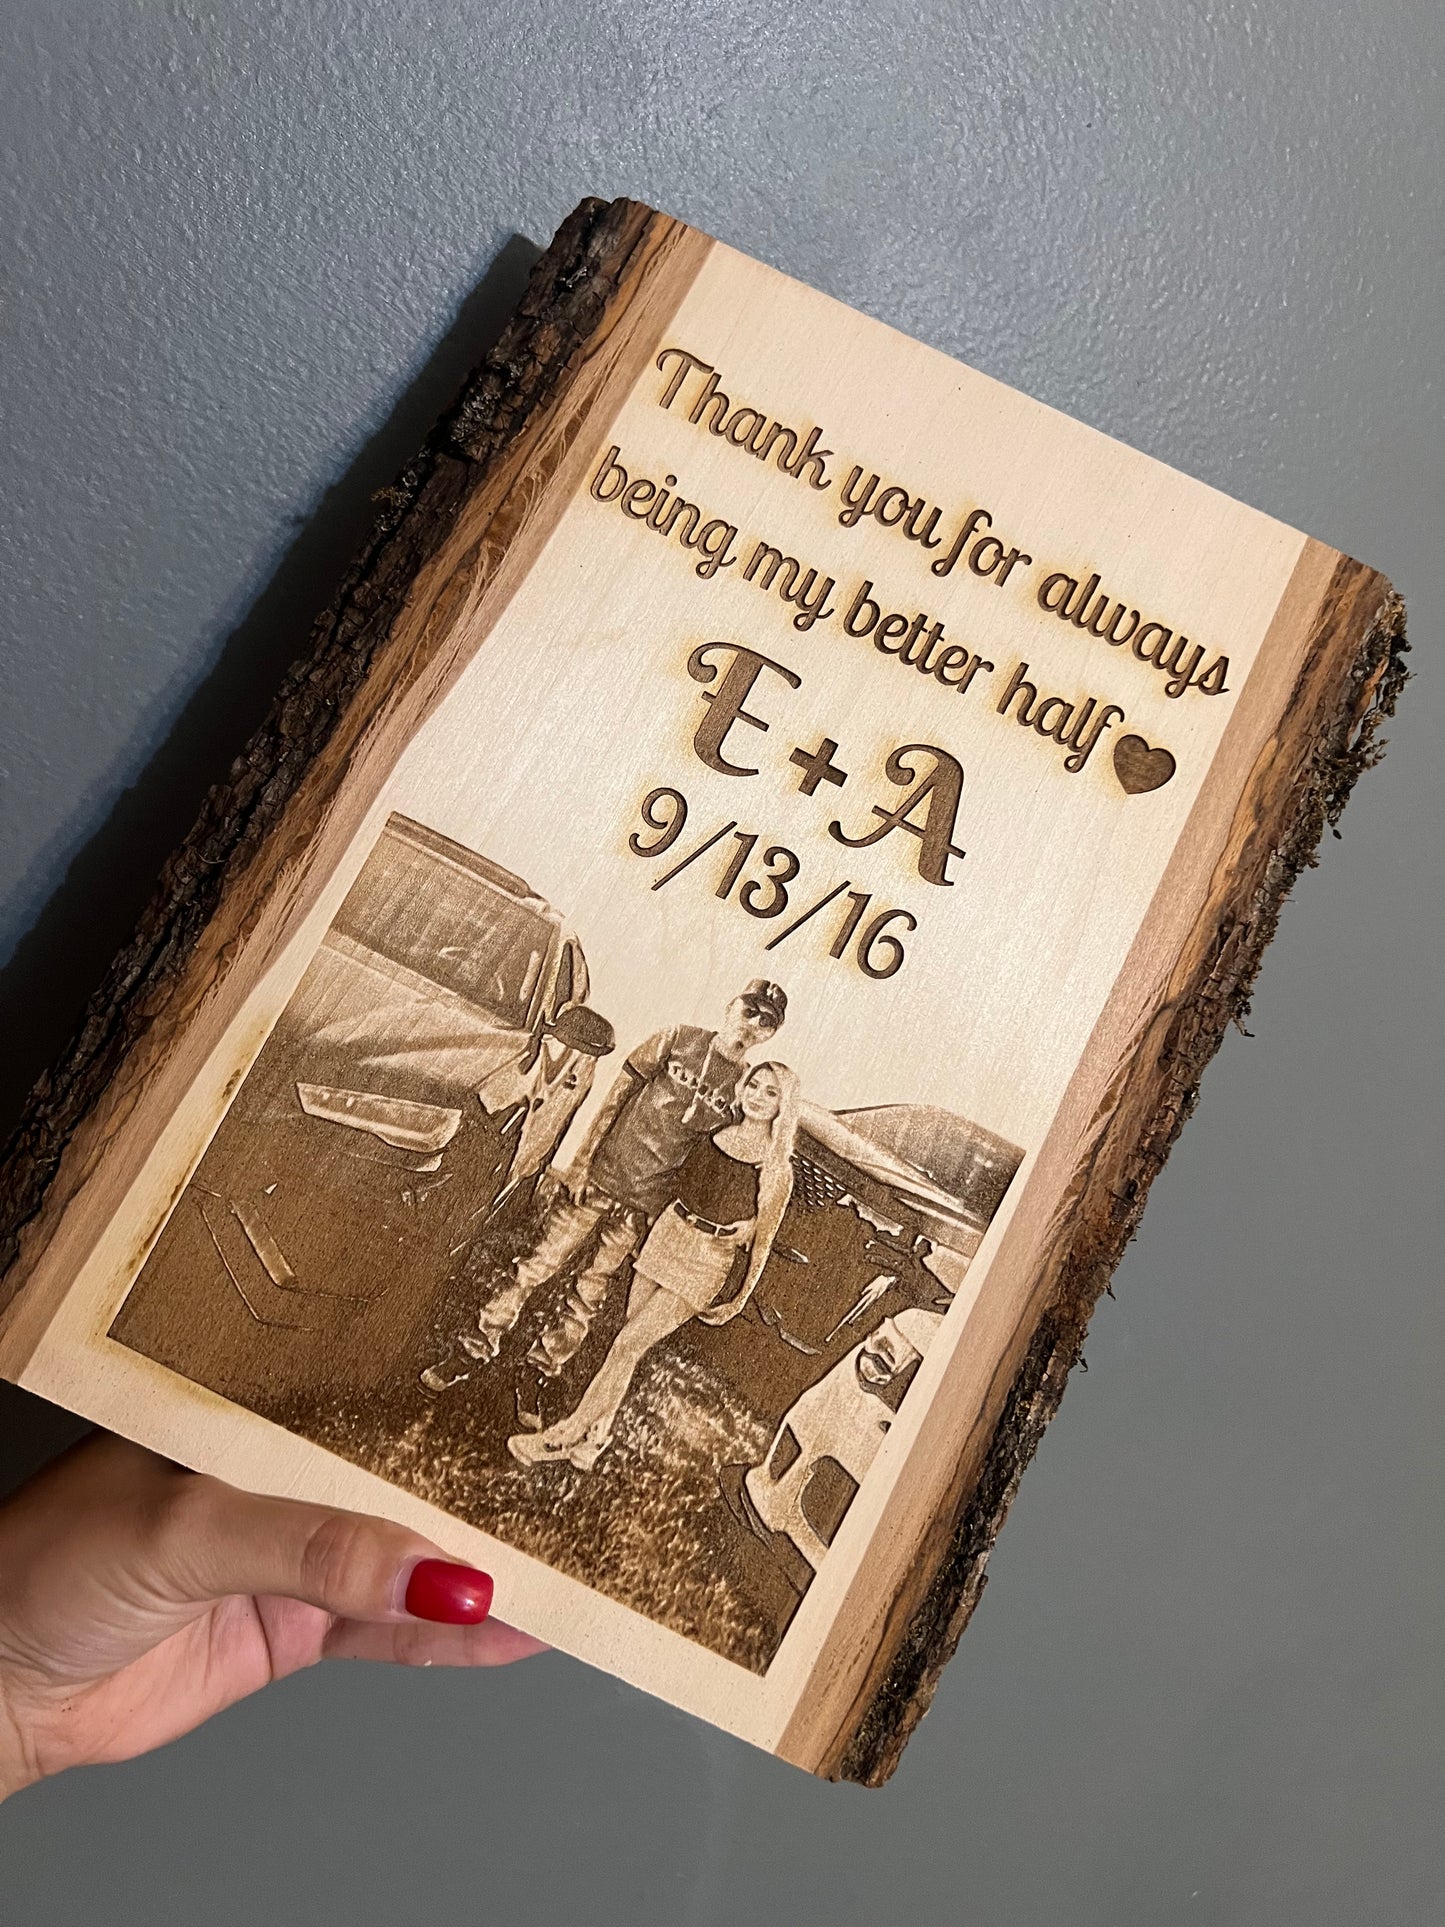 Thank you for always
being my better half♥
E + A
9/13/16